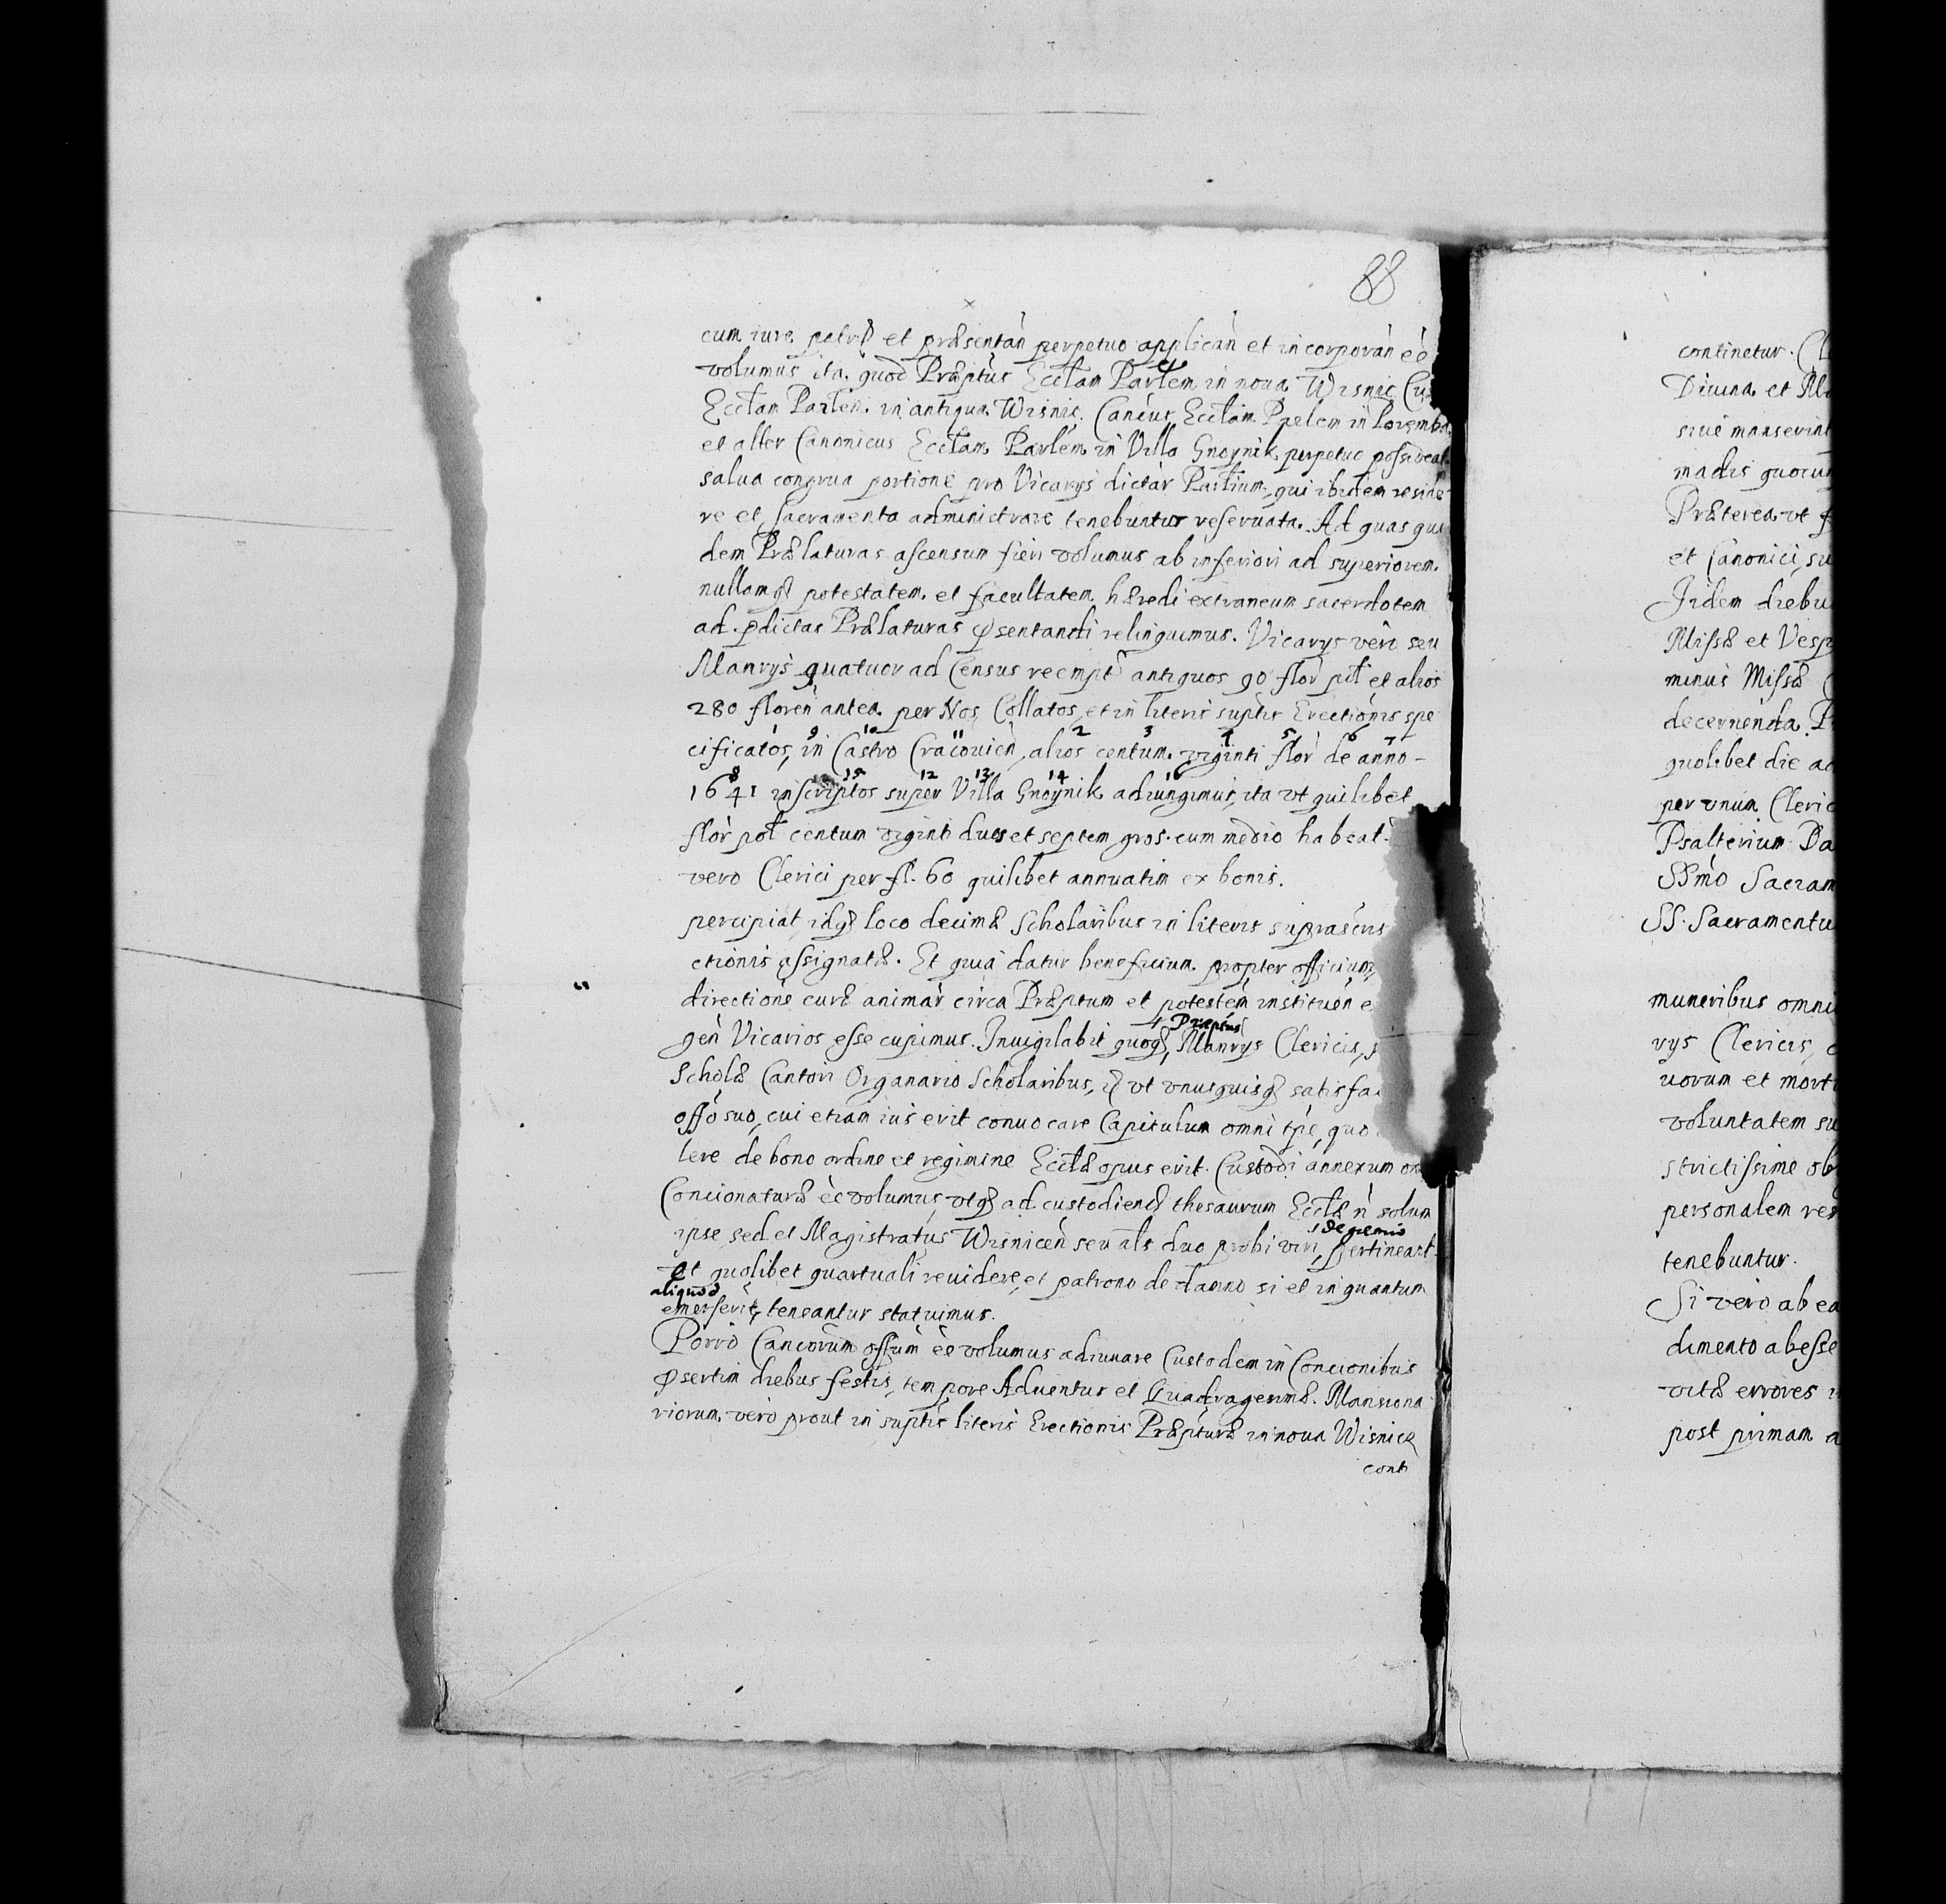 88
cum iure patrs et præsentan perpetuo applican et incorporan eẽ
volumus ita quod Præptus Eccłam Parlem in noua Wisnic Cus
Eccłam Parlem in antiqua Wisnic. Cancus Eccłam Paelem in Poremba
et alter Canonicus Eccłam Parlem in Villa Gnoynik perpetuo possideat
salua congrua portione pro Vicarys dictar Parlium, qui ibidem reside
re et sacramenta administrare tenebuntur reseruata. Ad quas qui
dem Prælaturas ascensum fieri volumus ab inferiori ad superiorem.
nullamq potestatem et facultatem hæredi extraneum sacerdotem
ad pdictas Prælaturas psentandi relinquimus. Vicarys vero seu
Manrys quatuor ad Census reempt antiquos 90 flor pol et alios
280 floren antea per Nos Collatos et in literis suptis Erectionis spe
9 10 11 2 3 4 5 6 7
cificatos, in Castro Cracouien, alios centum viginti flor de anno
8 15 12 13 14
1641 inscriptos super Villa Gnoynik adiungimus, ita vt quilibet
flor pol centum viginti duos et septem gros. cum medio habeat.
vero Clerici per fl. 60 quilibet annuatim ex bonis.
percipiat idq loco decimæ Scholaribus in literis suprascris
ctionis assignatæ. Et quia datur beneficium propter officium
directione curæ animar circa Præptum et potestem instituen e
gen Vicarios esse cupimus. Inuigilabit quoq, Manrys Clericis,
Præptus
Scholæ Cantori Organario Scholaribus, q vt vnusquisq satisfa
offo suo, cui etiam ius erit conuocare Capitulum omni tpe, quo
lere de bono ordine et regimine Eccłæ opus erit. Custodi annexum on
Concionaturæ eẽ volumus, vtq ad custodiend thesaurum Eccłæ n solum
ipse sed et Magistratus Wisnicen seu als duo probi viri, pertineant
de gremio
Et quolibet quartuali reuidere, et patrono de damno si et in quantum
aliquod
emerserit, teneantur statuimus.
Porro Cancorum offum eẽ volumus adiuuare Custodem in Concionibus
psertim diebus festis, tempore Aduentus et Quadragesimæ. Mansiona
riorum vero prout in suptis literis Erectionis Præpturæ in noua Wisnicz
cont
continetur. Cl
Diuina et Mi
siue manserint
madis quorum
Præterea vt f
et Canonici, su
Iidem diebu
Missæ et Vesp
minus Missæ
decernenda. P
quolibet die ac
per vnum Cleric
Psalterium Da
SSmo Sacram
SS. Sacramentu
muneribus omni
rys Clericis,
uorum et mort
voluntatem su
strictissime ob
personalem res
tenebuntur.
Si vero ab ea
dimento abesse
vitæ errores
post primam a